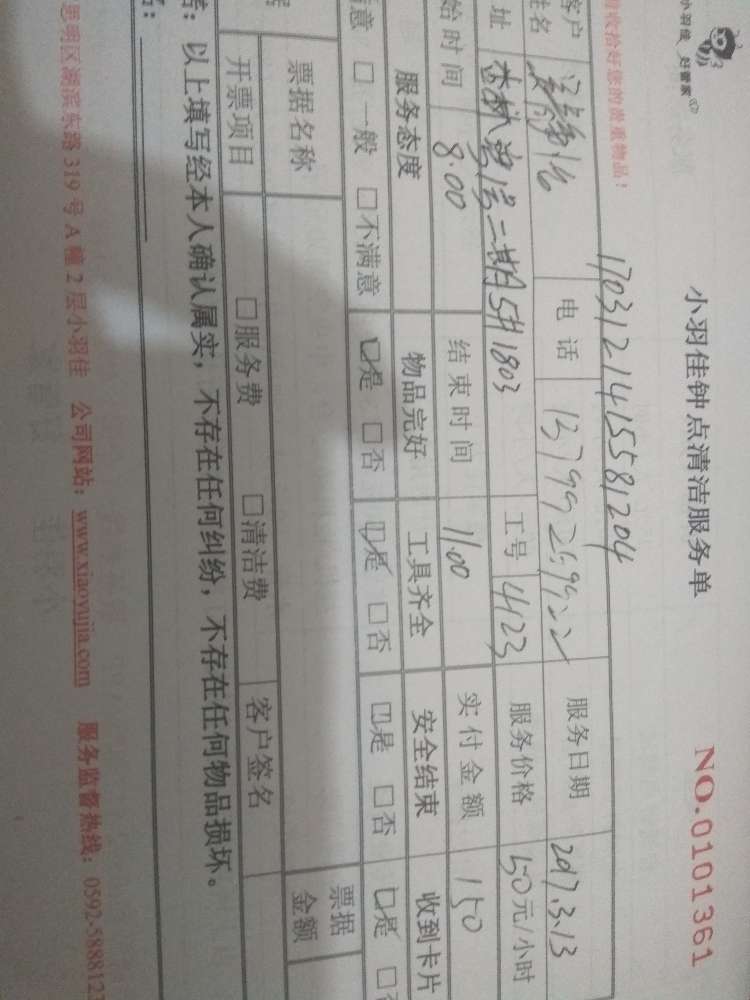 小羽佳 好管家
小羽佳钟点清洁服务单
NO.0101361
收拾好您的贵重物品！
1703121415581204
客户姓名 电话 服务日期 2017.3.13
址 二期5#1803 工号 4123 服务价格 50元/小时
始时间 8:00 结束时间 11:00 实付金额 150
服务态度 物品完好 工具齐全 安全结束 收到卡片
意 □一般 □不满意 ☑是 □否 ☑是 □否 ☑是 □否 ☑是
票据名称 票据金额
开票项目 □服务费 □清洁费 客户签名
：以上填写经本人确认属实，不存在任何纠纷，不存在任何物品损坏。
思明区湖滨东路319号A幢2层小羽佳 公司网站：www.xiaoyujia.com 服务监督热线：0592-588812